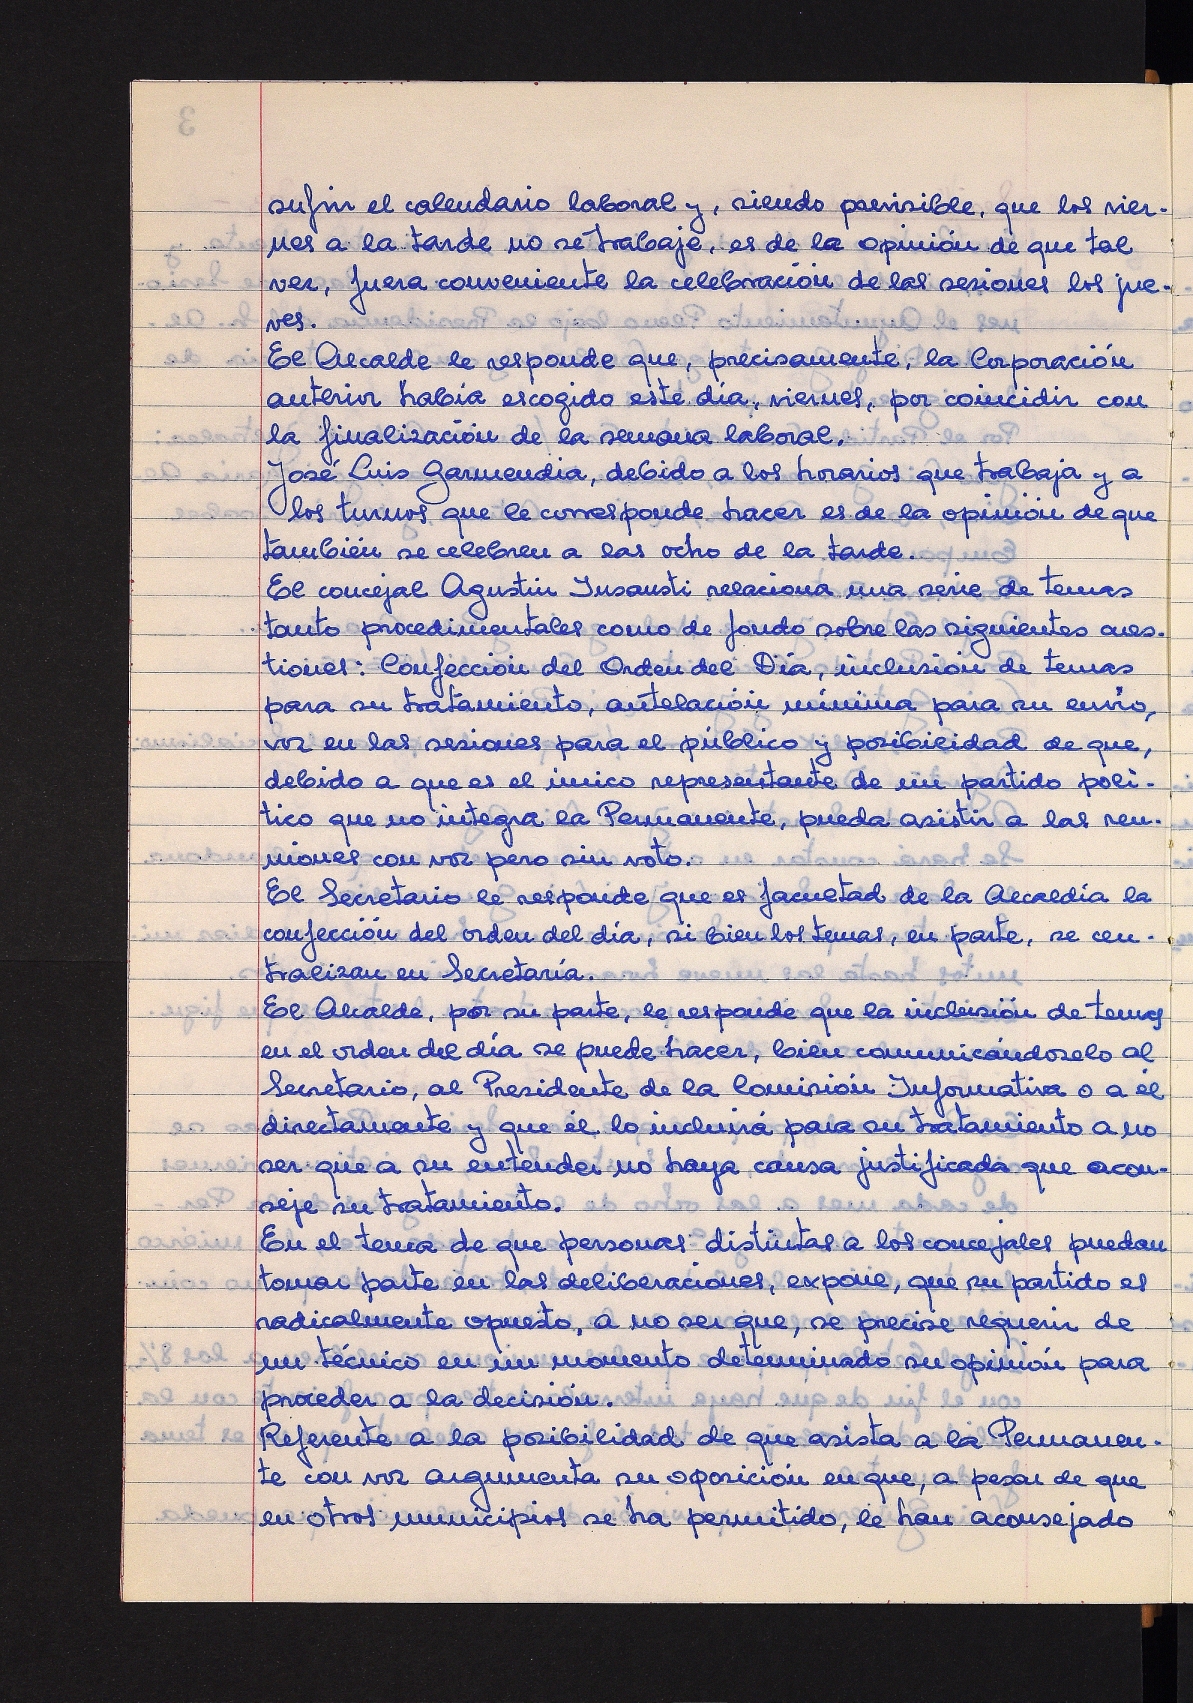 sufrir el calendario laboral y, siendo previsible, que los vier-
nes a la tarde no se trabaje, es de la opinión de que tal
vez, fuera conveniente la celebración de las sesiones los jue-
ves.
El Alcalde le responde que, precisamente, la Corporación
anterior había escogido este día, viernes, por coincidir con
la finalización de la semana laboral.
José Luis Garmendia, debido a los horarios que trabaja y a
los turnos que le corresponde hacer es de la opinión de que
también se celebren a las ocho de la tarde.
El concejal Agustin Insausti relaciona una serie de temas
tanto procedimentales como de fondo sobre las siguientes cues-
tiones: Confección del Orden del Día, inclusión de temas
para su tratamiento, antelación mínima para su envío,
voz en las sesiones para el público y posibilidad de que,
debido a que es el único representante de un partido polí-
tico que no integra la Permanente, pueda asistir a las reu-
niones con voz pero sin voto.
El Secretario le responde que es facultad de la Alcaldía la
confección del orden del día, si bien los temas, en parte, se cen-
tralizan en Secretaría.
El Alcalde, por su parte, le responde que la inclusión de temas
en el orden del día se puede hacer, bien comunicándoselo al
Secretario, al Presidente de la Comisión Informativa o a él
directamente y que él lo incluirá para su tratamiento a no
ser que a su entender no haya causa justificada que acon-
seje su tratamiento.
En el tema de que personas distintas a los concejales puedan
tomar parte en las deliberaciones, expone, que su partido es
radicalmente opuesto, a no ser que, se precise requerir de
un técnico en un momento determinado su opinión para
proceder a la decisión.
Referente a la posibilidad de que asista a la Permanen-
te con voz argumenta su oposición en que, a pesar de que
en otros municipios se ha permitido, le han aconsejado